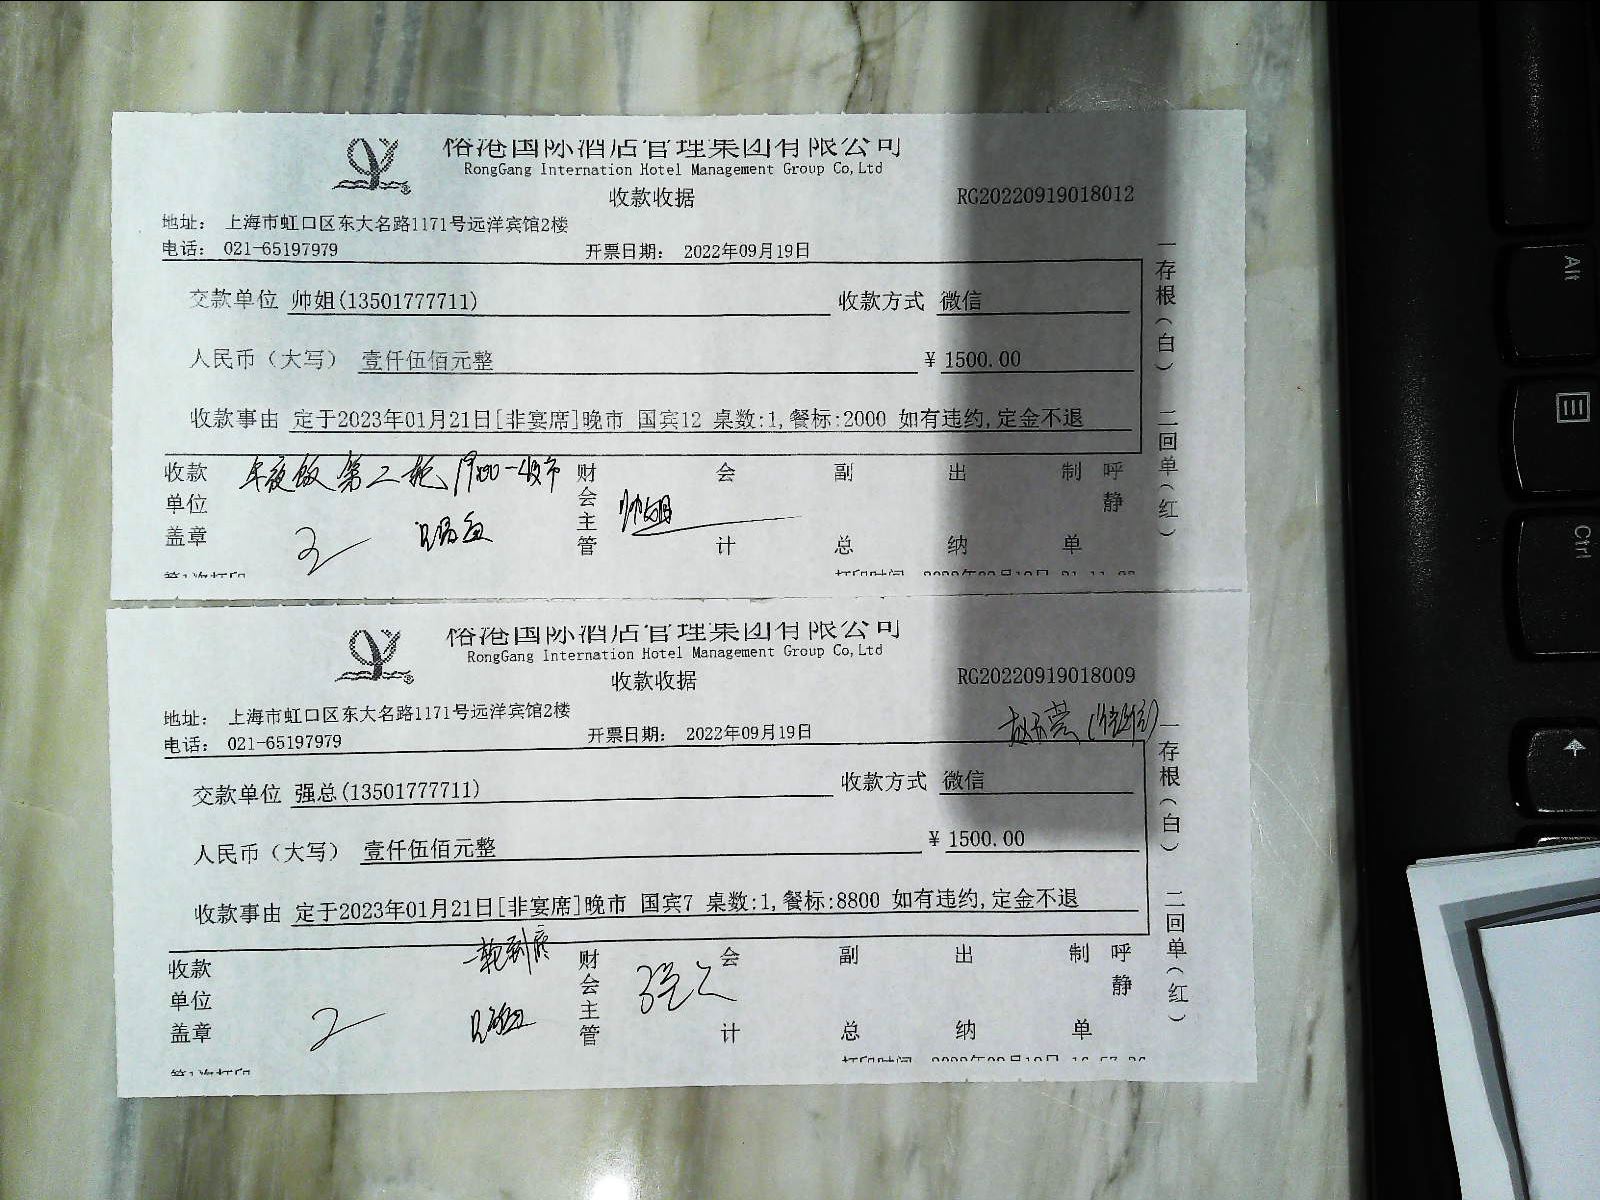 俗港国际酒店管理集团有限公司
RongGang Internation Hotel Management Group Co,Ltd
收款收据
RG20220919018012
地址： 上海市虹口区东大名路1171号远洋宾馆2楼
电话： 021-65197979 开票日期： 2022年09月19日
交款单位 帅姐(13501777711) 收款方式 微信
人民币（大写） 壹仟伍佰元整 ¥ 1500.00
收款事由 定于2023年01月21日[非宴席]晚市 国宾12 桌数:1,餐标:2000 如有违约,定金不退
一存根（白） 二回单（红）
收款单位盖章 年夜饭 第二轮 财会主管 帅姐 会计 副总 出纳 制单 呼静
第1次打印 打印时间
俗港国际酒店管理集团有限公司
RongGang Internation Hotel Management Group Co,Ltd
收款收据
RG20220919018009
地址： 上海市虹口区东大名路1171号远洋宾馆2楼
电话： 021-65197979 开票日期： 2022年09月19日
交款单位 强总(13501777711) 收款方式 微信
人民币（大写） 壹仟伍佰元整 ¥ 1500.00
收款事由 定于2023年01月21日[非宴席]晚市 国宾7 桌数:1,餐标:8800 如有违约,定金不退
一存根（白） 二回单（红）
收款单位盖章 财会主管 会计 副总 出纳 制单 呼静
第1次打印 打印时间
Alt
Ctrl